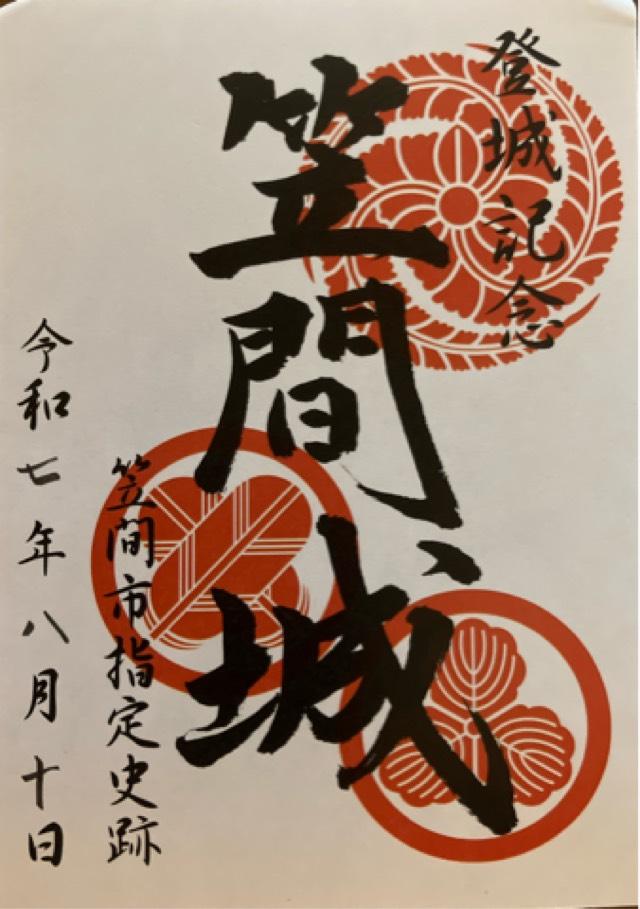 登城記念
笠間城
笠間市指定史跡
令和七年八月十日